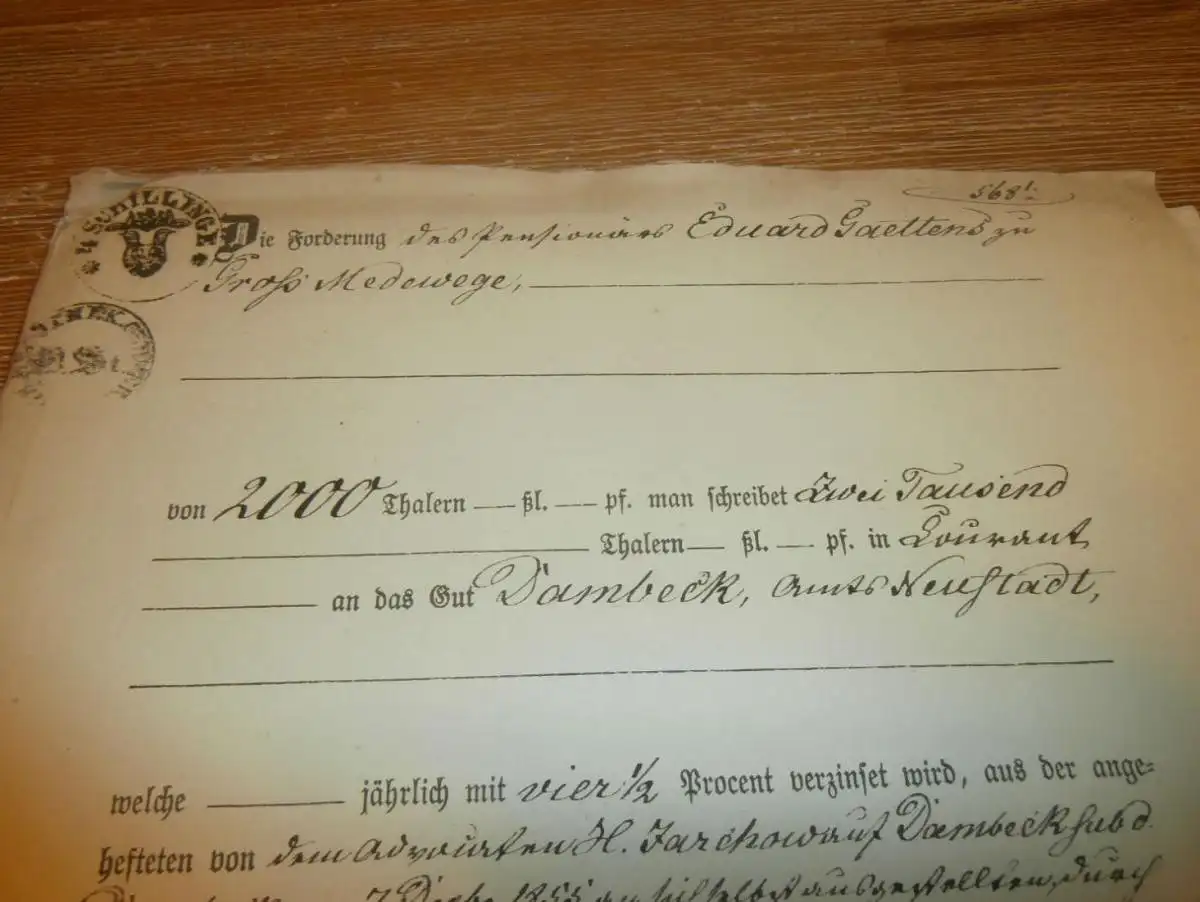 568!
4 SCHILLINGE
Die Forderung des Pensionärs Eduard Gaettens zu
Gross Medewege,
von 2000 Thalern — ßl. — pf. man schreibet Zwei Tausend
Thalern — ßl. — pf. in Courant
an das Gut Dambeck, Amts Neustadt,
welche jährlich mit vier 1/2 Procent verzinset wird, aus der ange=
hefteten von dem Advocaten H. Jarchow auf Dambeck sub d.
1855 an sich selbst ausgestellten, durch